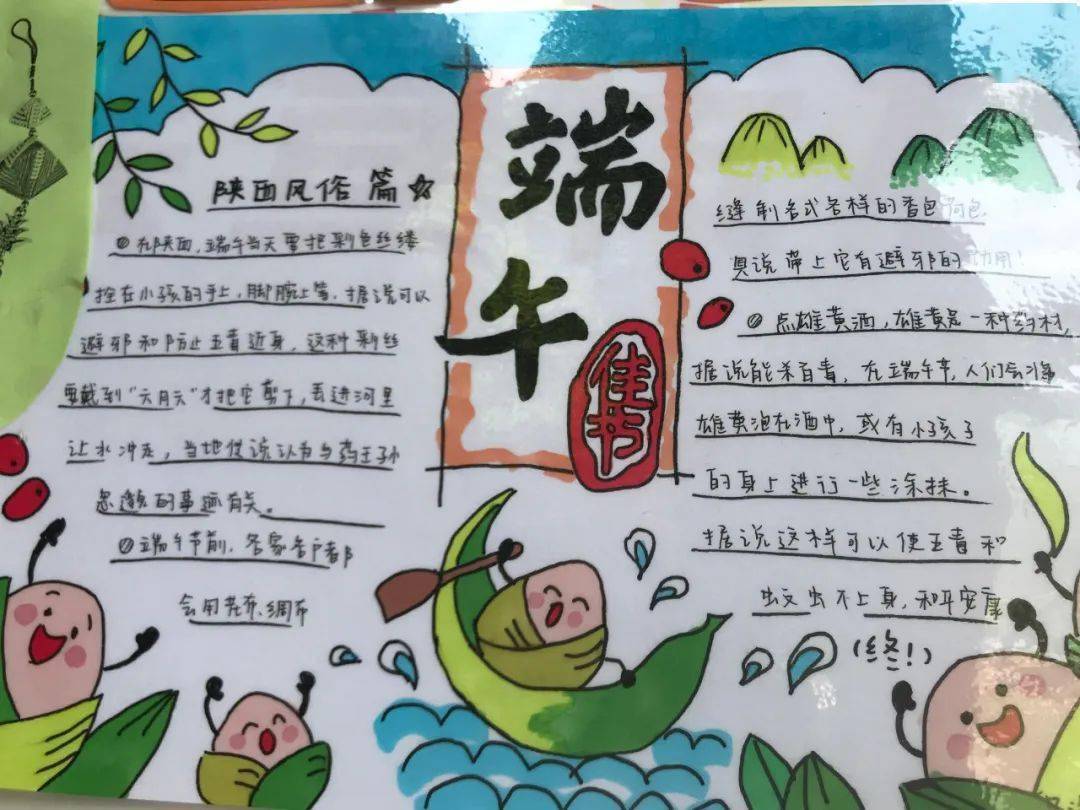 端午
佳节
陕西风俗篇
在陕西,端午当天要把彩色丝缕
拴在小孩的手上,脚腕上等。据说可以
避邪和防止五毒近身,这种彩丝
要戴到“六月六”才把它剪下,丢进河里
让水冲走,当地传说认为与药王孙
思邈的事迹有关。
端午节前,各家各户都
会用花布、绸布
缝制各式各样的香包荷包
具说带上它有避邪的功用!
点雄黄酒,雄黄是一种药材,
据说能杀百毒,在端午节,人们会将
雄黄泡在酒中,或有小孩子
的身上进行一些涂抹。
据说这样可以使五毒和
蚊虫不上身,和平安康
(终!)